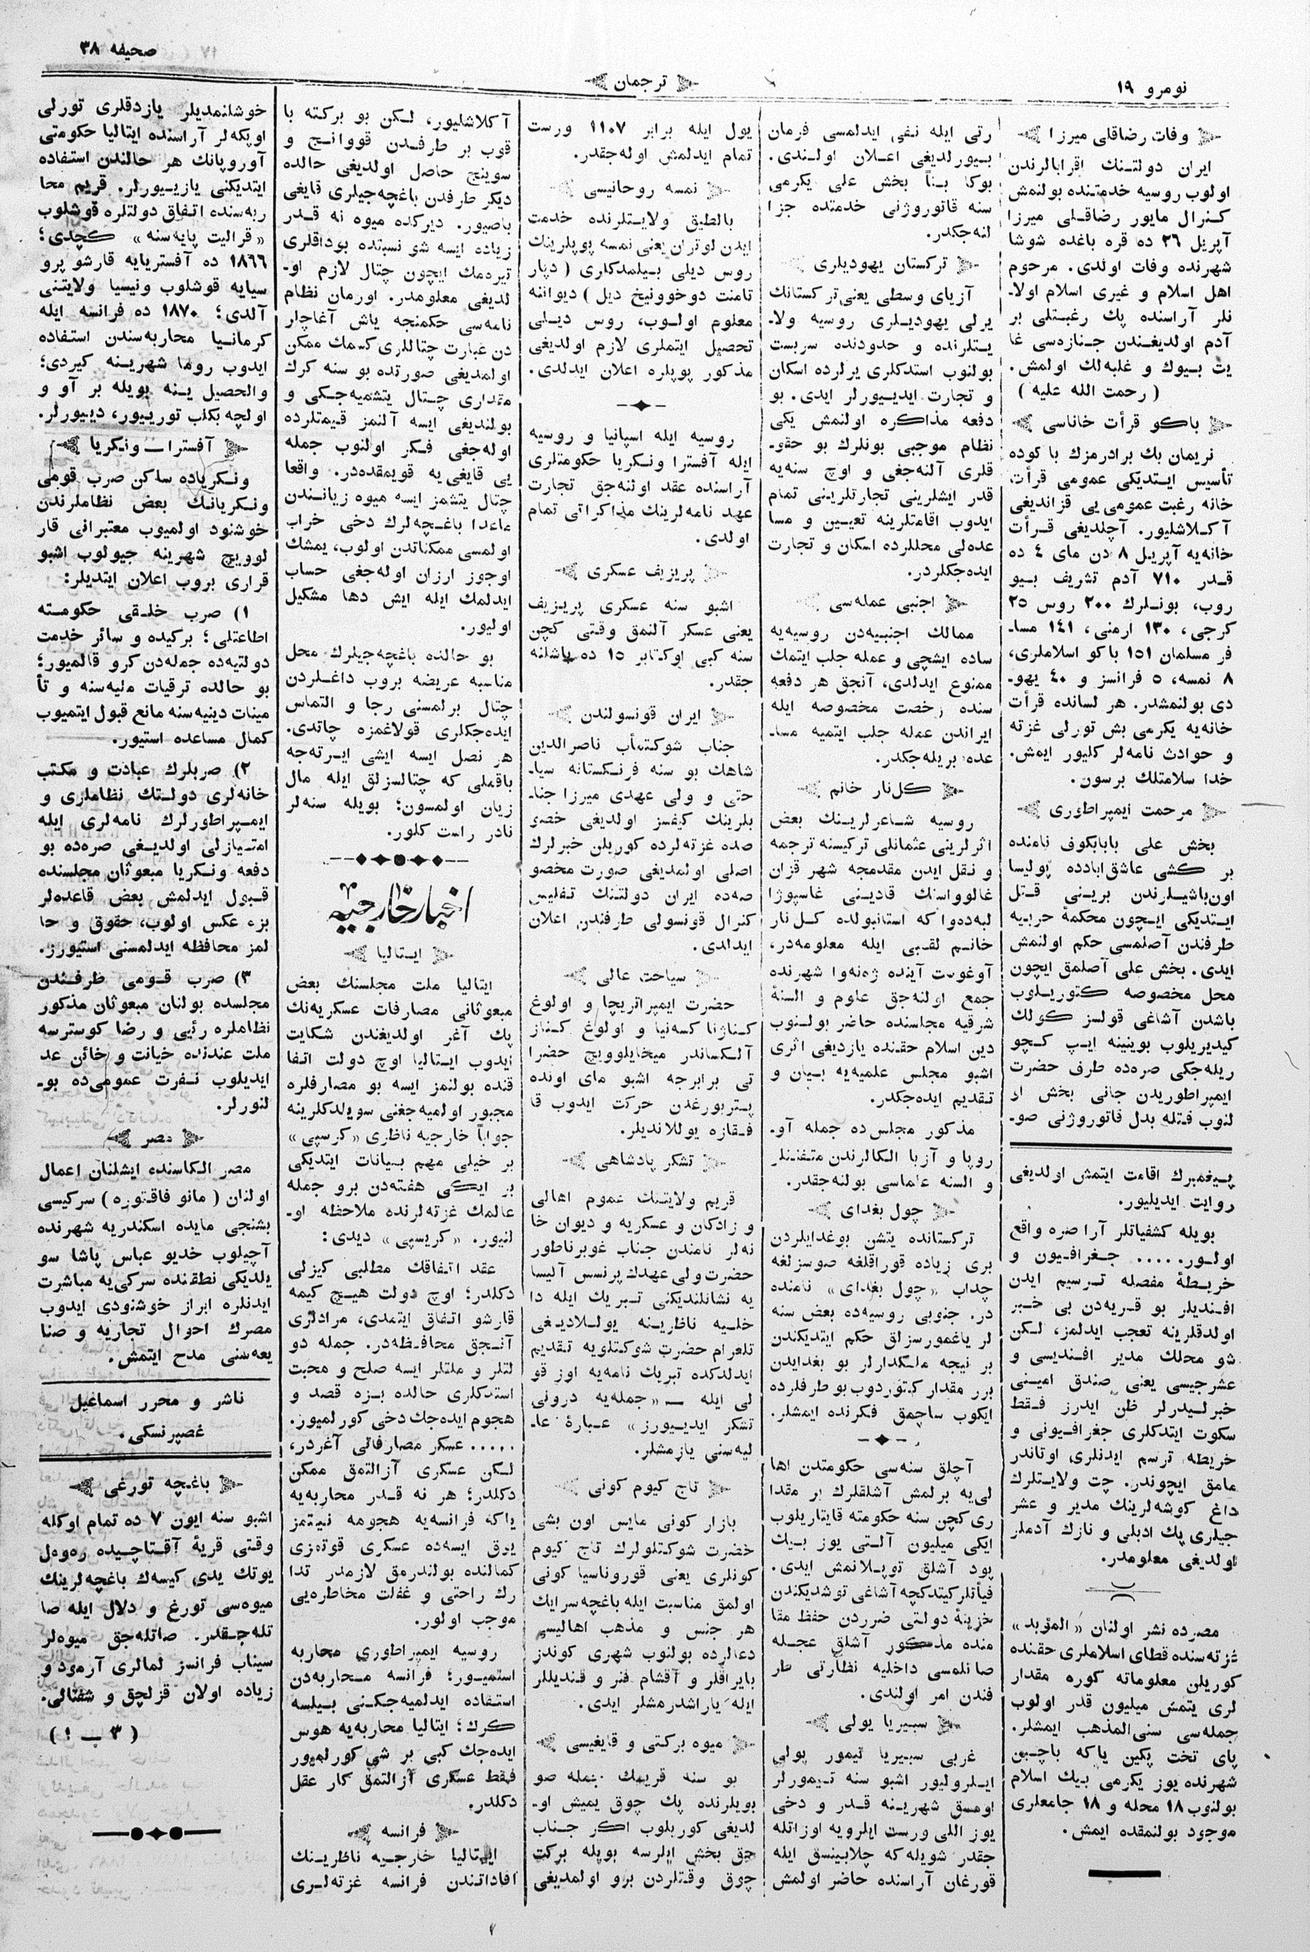 نومرو ١٩
ترجمان
صحیفه ٣٨
وفات رضاقلی میرزا
ایران دولتنك اقرابالرندن
اولوب روسیه خدمتنده بولنمش
كنرال مایور رضاقلی میرزا
آپریل ٢٦ ده قره باغده شوشا
شهرنده وفات اولدی. مرحوم
اهل اسلام و غیری اسلام اولا۔
نلر آراسنده پك رغبتلی بر
آدم اولدیغندن جنازه‌سی غا
یت بیوك و غلبه‌لك اولمش.
( رحمت الله علیه )
باكو قرأت خاناسی
نریمان بك برادرمزك باكوده
تأسیس ایتدیكی عمومی قرأت
خانه رغبت عمومی یی قزاندیغی
آكلاشلیور. آچلدیغی قرأت
خانه‌یه آپریل ٨ دن مای ٤ ده
قدر ٧١٠ آدم تشریف بیو
روب، بونلرك ٢٠٠ روس ٢٥
كرجی، ١٣٠ ارمنی، ١٤١ مسا۔
فر مسلمان ١٥١ باكو اسلاملری،
٨ نمسه، ٥ فرانسز و ٤٠ یهو۔
دی بولنمشدر. هر لسانده قرأت
خانه‌یه یكرمی بش تورلی غزته
و حوادث نامه‌لر كلیور ایمش.
خدا سلامتلك برسون.
مرحمت ایمپراطوری
بخش علی بابابكوف نامنده
بر كشی عاشق‌ابادده پولیسا
اون‌باشیلرندن برینی قتل
ایتدیكی ایچون محكمهٔ حربیه
طرفندن آصلمسی حكم اولنمش
ایدی. بخش علی آصلمق ایچون
محل مخصوصه كتوریلوب
باشدن آشاغی قولسز كولك
كیدیریلوب بوینینه ایپ كچو
ریله‌جكی صره‌ده طرف حضرت
ایمپراطوریدن جانی بخش او
لنوب قتله بدل قاتوروژنی صو۔
پیغمبرك اقامت ایتمش اولدیغی
روایت ایدیلیور.
بویله كشفیاتلر آرا صره واقع
اولور..... جغرافیون و
خریطهٔ مفصله ترسیم ایدن
افندیلر بو قریه‌دن بی خبر
اولدقلرینه تعجب ایدلمز، لكن
شو محلك مدیر افندیسی و
عشرجیسی یعنی صندق امینی
خبرلیدرلر ظن ایدرز فقط
سكوت ایتدكلری جغرافیونی و
خریطه ترسم ایدنلری اوتاندر
مامق ایچوندر. چت ولایتلرك
داغ كوشه‌لرینك مدیر و عشر
جیلری پك ادبلی و نازك آدملر
اولدیغی معلومدر.
مصرده نشر اولنان «المؤید»
غزته‌سنده قطای اسلاملری حقنده
كوریلن معلوماته كوره مقدار
لری یتمش میلیون قدر اولوب
جمله‌سی سنی‌المذهب ایمشلر.
پای تخت پكین یاكه باچین
شهرنده یوز یكرمی بیك اسلام
بولنوب ١٨ محله و ١٨ جامعلری
موجود بولنمقده ایمش.
رتی ایله نفی ایدلمسی فرمان
بیورلدیغی اعلان اولندی.
بوكا بناً بخش علی یكرمی
سنه قاتوروژنی خدمتده جزا
لنه‌جكدر.
تركستان یهودیلری
آزیای وسطی یعنی تركستانك
یرلی یهودیلری روسیه ولا۔
یتلرنده و حدودنده سربست
بولنوب استدكلری یرلرده اسكان
و تجارت ایدیورلر ایدی. بو
دفعه مذاكره اولنمش یكی
نظام موجبی بونلرك بو حقو۔
قلری آلنه‌جغی و اوچ سنه‌یه
قدر ایشلرینی تجارتلرینی تمام
ایدوب اقامتلرینه تعیین و مسا
عده‌لی محللرده اسكان و تجارت
ایده‌جكلردر.
اجنبی عمله‌سی
ممالك اجنبیه‌دن روسیه‌یه
ساده ایشچی و عمله جلب ایتمك
ممنوع ایدلدی، آنجق هر دفعه
سنده رخصت مخصوصه ایله
ایراندن عمله جلب ایتمیه مسا۔
عده بریله‌جكدر.
كل‌نار خانم
روسیه شاعرلرینك بعض
اثرلرینی عثمانلی تركیسنه ترجمه
و نقل ایدن مقدمجه شهر قزان
غالوواسنك قادینی غاسپوژا
لبه‌ده‌وا كه استانبولده كل‌نار
خانم لقبی ایله معلومه‌در،
آوغوست آینده ژنه‌وا شهرنده
جمع اولنه‌جق علوم و السنهٔ
شرقیه مجلسنده حاضر بولنوب
دین اسلام حقنده یازدیغی اثری
اشبو مجلس علمیه‌یه بیان و
تقدیم ایده‌جكدر.
مذكور مجلس‌ده جمله آو۔
روپا و آزیا الكالرندن متفننلر
و السنه علماسی بولنه‌جقدر.
چول بغدای
تركستانده یتشن بوغدایلردن
بری زیاده قوراقلغه صوسزلغه
چداب «چول بغدای» نامنده
در. جنوبی روسیه‌ده بعض سنه
لر یاغمورسزلق حكم ایتدیكندن
بر نیجه ملكدارلر بو بغدایدن
برر مقدار كتوردوب بو طرفلرده
ایكوب ساچمق فكرنده ایمشلر.
آچلق سنه‌سی حكومتدن اها
لی‌یه برلمش آشلقلرك بر مقدا
ری كچن سنه حكومته قایتاریلوب
ایكی میلیون آلتی یوز بیك
پود آشلق توپلانمش ایدی.
فیأتلر كیتدكچه آشاغی توشدیكندن
خزینهٔ دولتی ضرردن حفظ مقا
منده مذكور آشلق عجله
صاتلمسی داخلیه نظارتی طر
فندن امر اولندی.
سبیریا یولی
غربی سبیریا تیمور یولی
ایلرولیور اشبو سنه تیمورلر
اومسق شهرینه قدر و دخی
یوز اللی ورست ایلرویه اوزاتله
جقدر شویله‌كه چلابینسق ایله
قورغان آراسنده حاضر اولمش
یول ایله برابر ١١٠٧ ورست
تمام ایدلمش اوله‌جقدر.
نمسه روحانیسی
بالطیق ولایتلرنده خدمت
ایدن لوتران یعنی نمسه پوپلرینك
روس دیلی بیلمدكلری ( دپار
تامنت دوخوونیخ دیل ) دیواننه
معلوم اولوب، روس دیلی
تحصیل ایتملری لازم اولدیغی
مذكور پوپلره اعلان ایدلدی.
روسیه ایله اسپانیا و روسیه
ایله آفسترا ونكریا حكومتلری
آراسنده عقد اولنه‌جق تجارت
عهد نامه‌لرینك مذاكراتی تمام
اولدی.
پریزیف عسكری
اشبو سنه عسكری پریزیف
یعنی عسكر آلنمق وقتی كچن
سنه كبی اوكتابر ١٥ ده باشلنه
جقدر.
ایران قونسولندن
جناب شوكتمأب ناصرالدین
شاهك بو سنه فرنكستانه سیا۔
حتی و ولی عهدی میرزا جنا۔
بلرینك كیفسز اولدیغی خصو
صده غزته‌لرده كوریلن خبرلرك
اصلی اولمدیغی صورت مخصو
صه‌ده ایران دولتنك تفلیس
كنرال قونسولی طرفندن اعلان
ایدلدی.
سیاحت عالی
حضرت ایمپراتریچا و اولوغ
كناژنا كسه‌نیا و اولوغ كناز
آلكساندر میخایلوویچ حضرا
تی برابرجه اشبو مای اونده
پتربورغدن حركت ایدوب قا
فقازه یوللاندیلر.
تشكر پادشاهی
قریم ولایتنك عموم اهالی
و زادكان و عسكریه و دیوان خا
نه‌لر نامندن جناب غوبرناطور
حضرت ولی عهدك پرنسس آلیسا
یه نشانلندیكنی تبریك ایله دا
خلیه ناظرینه یوللادیغی
تلغرام حضرت شوكتلویه تقدیم
ایدلدكده تبریك نامه‌یه اوز قو
لی ایله — «جمله‌یه درونی
تشكر ایدیورز» عبارهٔ عا۔
لیه‌سنی یازمشلر.
تاج كیوم كونی
بازار كونی مایس اون بشی
حضرت شوكتلولرك تاج كیوم
كونلری یعنی قوروناسیا كونی
اولمق مناسبت ایله باغچه‌سرایك
هر جنس و مذهب اهالیسی
دعالرده بولنوب شهری كوندز
بایراقلر و آقشام فنر و قندیللر
ایله یاراشدرمشلر ایدی.
میوه بركتی و قایغیسی
بو سنه قریمك جمله صو
بویلرنده پك چوق یمیش او۔
لدیغی كوریلوب اكر جناب
حق بخش ایلرسه بویله بركت
چوق وقتلردن برو اولمدیغی
آكلاشلیور، لكن بو بركته با
قوب بر طرفدن قووانج و
سوینج حاصل اولدیغی حالده
دیكر طرفدن باغچه‌جیلری قایغی
باصیور. دیركده میوه نه قدر
زیاده ایسه شو نسبتده بوداقلری
تیره‌مك ایچون چتال لازم او۔
لدیغی معلومدر. اورمان نظام
نامه‌سی حكمنجه یاش آغاچلر
دن عبارت چتاللری كسمك ممكن
اولمدیغی صورتده بو سنه كرك
مقداری چتال یتشمیه‌جكی و
بولندیغی ایسه آلنمز قیمتلرده
اوله‌جغی فكر اولنوب جمله
یی قایغی یه قویمقده‌در. واقعا
چتال یتشمز ایسه میوه زیانندن
ماعدا باغچه‌لرك دخی خراب
اولمسی ممكناتدن اولوب، یمشك
اوجوز ارزان اوله‌جغی حساب
ایدلمك ایله ایش دها مشكل
اولیور.
بو حالده باغچه‌جیلرك محل
مناسبه عریضه بروب داغلردن
چتال برلمسنی رجا و التماس
ایده‌جكلری قولاغمزه چاتدی.
هر نصل ایسه ایشی ایرته‌جه
باقملی كه چتالسزلق ایله مال
زیان اولمسون؛ بویله سنه‌لر
نادر راست كلور.
اخبار خارجیه
ایتالیا
ایتالیا ملت مجلسنك بعض
مبعوثانی مصارفات عسكریه‌نك
پك آغر اولدیغندن شكایت
ایدوب ایتالیا اوچ دولت اتفا
قنده بولنمز ایسه بو مصارفلره
مجبور اولمیه‌جغنی سویلدكلرینه
جواباً خارجیه ناظری «كرسپی»
بر خیلی مهم بیانات ایتدیكی
بر ایكی هفته‌دن برو جمله
عالمك غزته‌لرنده ملاحظه او۔
لنیور. «كریسپی» دیدی:
عقد اتفاقك مطلبی كیزلی
دكلدر؛ اوچ دولت هیچ كیمه
قارشو اتفاق ایتمدی، مرادلری
آنجق محافظه‌در. جمله دو
لتلر و ملتلر ایسه صلح و محبت
استدكلری حالده بزه قصد و
هجوم ایده‌جك دخی كورلمیور.
..... عسكر مصارفاتی آغردر،
لكن عسكری آزالتمق ممكن
دكلدر؛ هر نه قدر محاربه‌یه
یاكه فرانسه‌یه هجومه نیتمز
یوق ایسه‌ده عسكری قوتمزی
كمالنده بولندرمق لازمدر تدا
رك راحتی و غفلت مخاطره‌یی
موجب اولور.
روسیه ایمپراطوری محاربه
استمیور؛ فرانسه محاربه‌دن
استفاده ایدلمیه‌جكنی بیلسه
كرك؛ ایتالیا محاربه‌یه هوس
ایده‌جك كبی بر شی كورلمیور
فقط عسكری آزالتمق كار عقل
دكلدر.
فرانسه
ایتالیا خارجیه ناظرینك
افاداتندن فرانسه غزته‌لری
خوشلنمدیلر یازدقلری تورلی
اوپكه‌لر آراسنده ایتالیا حكومتی
آوروپانك هر حالندن استفاده
ایتدیكنی یازیورلر. قریم محا
ربه‌سنده اتفاق دولتلره قوشلوب
«قرالیت پایه‌سنه» كچدی؛
١٨٦٦ ده آفستریایه قارشو پرو
سیایه قوشلوب ونیسیا ولایتنی
آلدی؛ ١٨٧٠ ده فرانسه ایله
كرمانیا محاربه‌سندن استفاده
ایدوب روما شهرینه كیردی؛
والحصیل ینه بویله بر آو و
اولجه بكلب توریور، دیورلر.
آفسترا—ونكریا
ونكریاده ساكن صرب قومی
ونكریانك بعض نظاملرندن
خوشنود اولمیوب معتبرانی قار
لوویچ شهرینه جیولوب اشبو
قراری بروب اعلان ایتدیلر:
١) صرب خلقی حكومته
اطاعتلی؛ بركیده و سائر خدمت
دولتیه‌ده جمله‌دن كرو قالمیور؛
بو حالده ترقیات ملیه‌سنه و تأ
مینات دینیه‌سنه مانع قبول ایتمیوب
كمال مساعده استیور.
٢) صربلرك عبادت و مكتب
خانه‌لری دولتك نظاملری و
ایمپراطورلرك نامه‌لری ایله
امتیازلی اولدیغی صره‌ده بو
دفعه ونكریا مبعوثان مجلسنده
قبول ایدلمش بعض قاعده‌لر
بزه عكس اولوب، حقوق و حا
لمز محافظه ایدلمسنی استیورز.
٣) صرب قومی طرفندن
مجلسده بولنان مبعوثان مذكور
نظاملره رئیی و رضا كوسترسه
ملت عندنده خیانت و خائن عد
ایدیلوب نفرت عمومی‌ده بو۔
لنورلر.
مصر
مصر الكاسنده ایشلنان اعمال
اولنان ( مانوفاقتوره ) سركیسی
بشنجی مایده اسكندریه شهرنده
آچیلوب خدیو عباس پاشا سو
یلدیكی نطقنده سركی‌یه مباشرت
ایدنلره ابراز خوشنودی ایدوب
مصرك احوال تجاریه و صنا
یعه‌سنی مدح ایتمش.
ناشر و محرر اسماعیل
غصپرنسكی.
باغچه تورغی
اشبو سنه ایون ٧ ده تمام اوكله
وقتی قریهٔ آقتاچیده ره‌وه‌ل
یوتك یدی كیسه‌ك باغچه‌لرینك
میوه‌سی تورغ و دلال ایله صا
تله‌جقدر. صاتله‌جق میوه‌لر
سیناب فرانسز لمالری آرمود و
زیاده اولان قزلچق و شفتالی.
( ٣ — ١ )